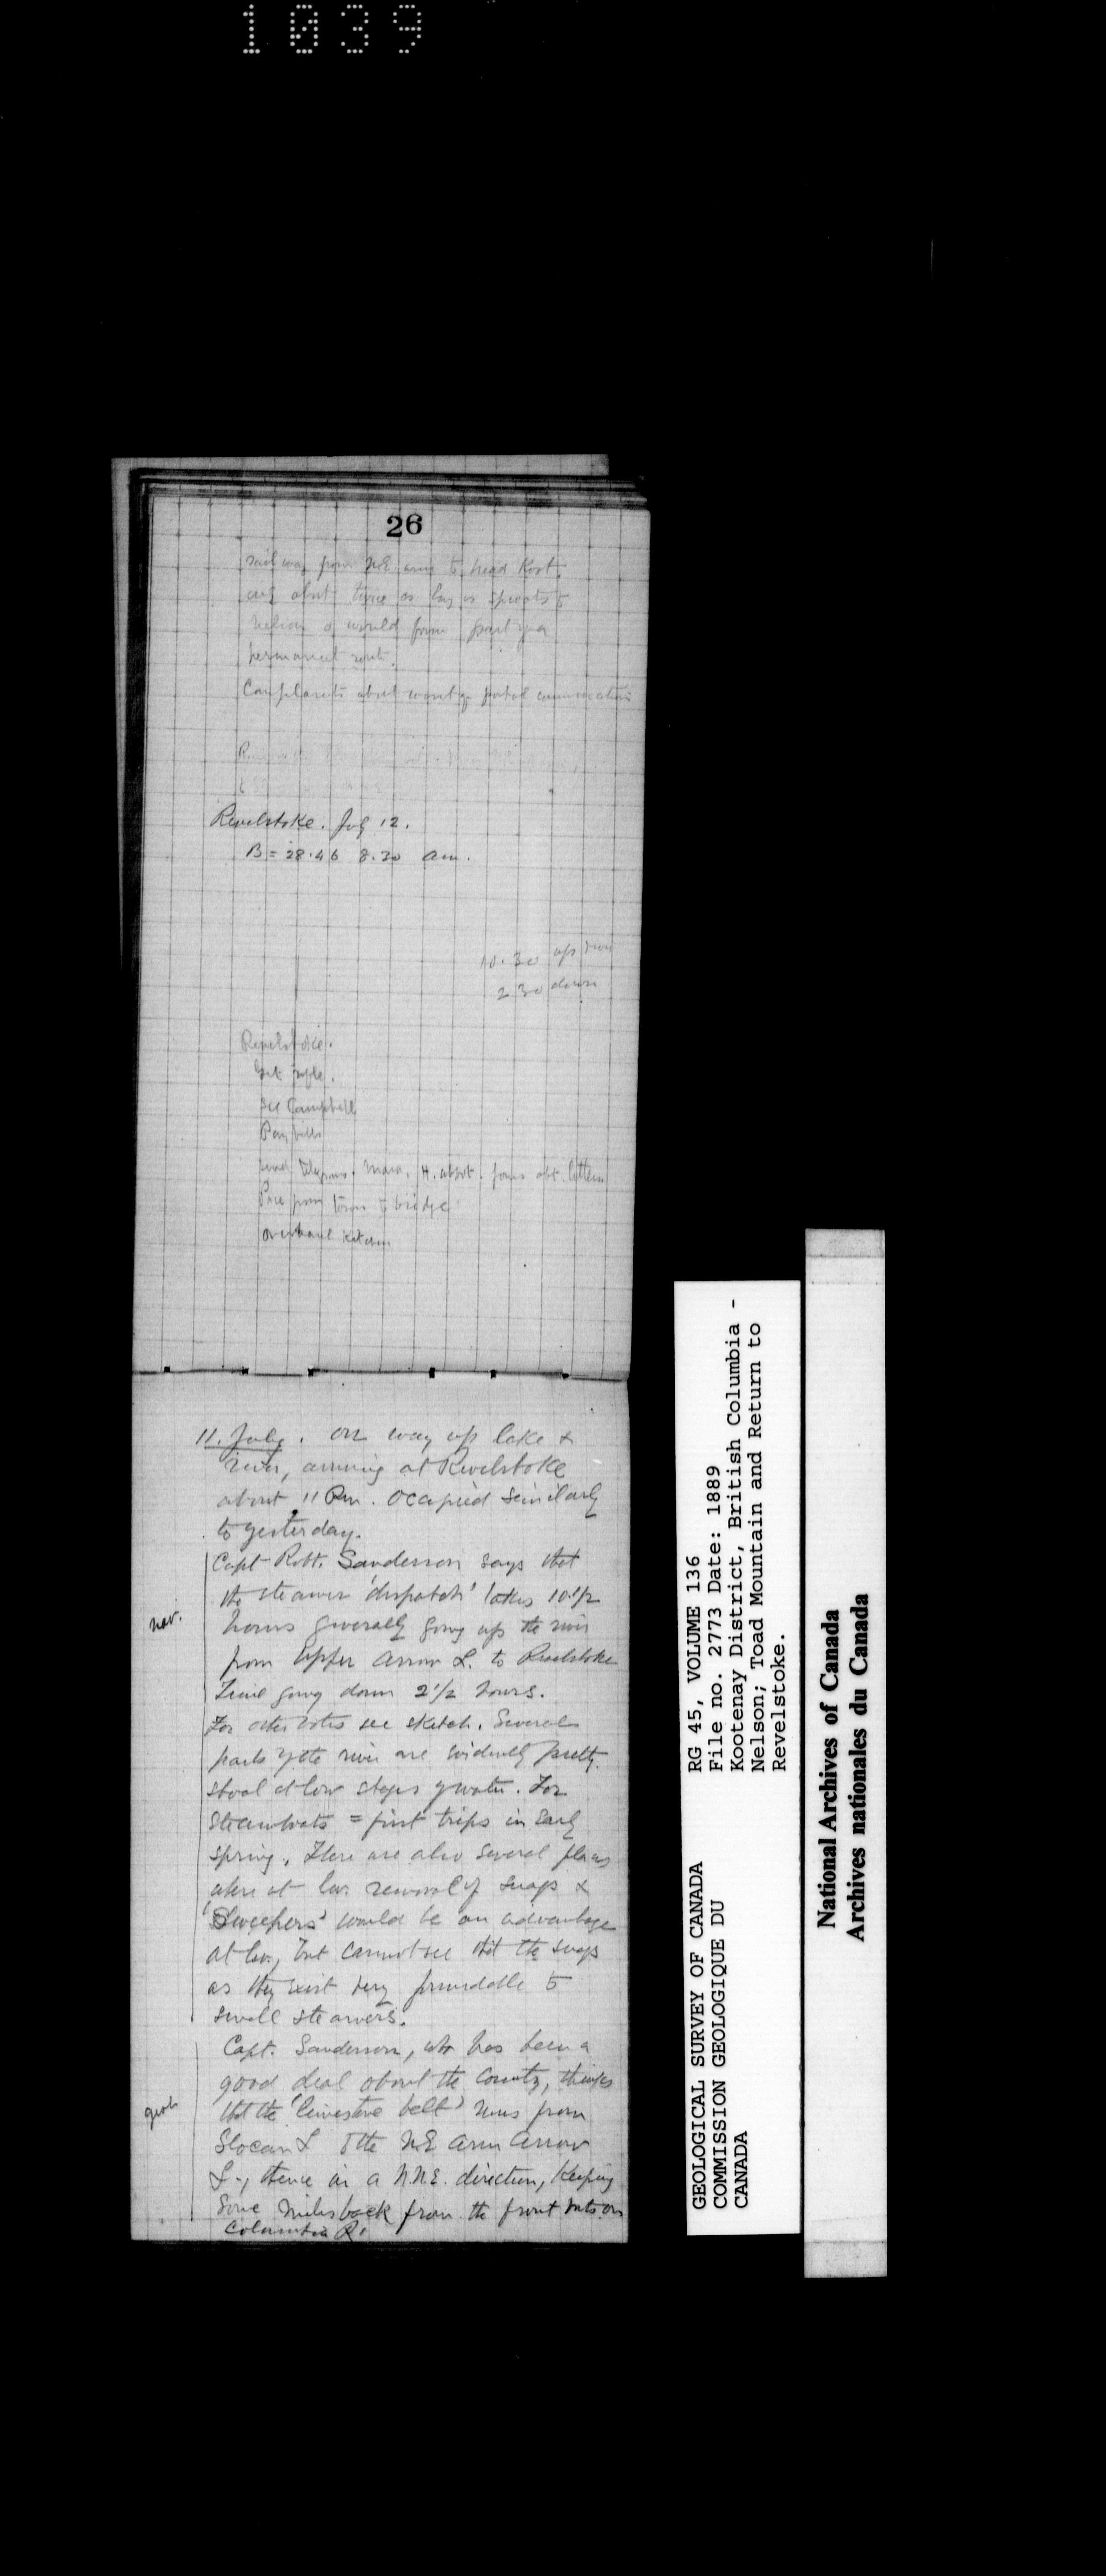 1039
26
railway from N.E. arm to head Koot.
only abot twice as long as Sproats to
Nelson & would form part of a
permanent route.
Complaints about want of postal communication
Revelstoke. July 12.
B = 28.46 8.30 am.
10.30 up river
2 30 down
Revelstoke.
Get rifle.
See Campbell
Pay bills
Send telegrams. Mara, H. Abbot.
Price from town to bridge
Overhaul
11. July. On way up lake &
river, arriving at Revelstoke
about 11 P.m. Ocapied similarly
to yesterday.
Capt Robt. Sanderson says that
the steamer 'dispatch' takes 10 1/2
hours generally going up the river
from Upper Arrow L. to Revelstoke
Time going down 2 1/2 hours.
nav.
For other notes see sketch. Several
parts of the river are evidently pretty
shoal at low stages of water. For
steamboats = first trips in early
spring. There are also several places
where at low removal of snags &
'Sweepers' would be an advantage
at low, but cannot see that the snags
as they exist very formidable to
small steamers.
Capt. Sanderson, who has been a
good deal about the country, thinks
that the 'limestone belt' runs from
geol.
Slocan L to the N.E. arm Arrow
L., thence in a N.N.E. direction, keeping
some miles back from the front mts. on
Columbia R.
GEOLOGICAL SURVEY OF CANADA
COMMISSION GEOLOGIQUE DU
CANADA
RG 45, VOLUME 136
File no. 2773 Date: 1889
Kootenay District, British Columbia -
Nelson; Toad Mountain and Return to
Revelstoke.
National Archives of Canada
Archives nationales du Canada